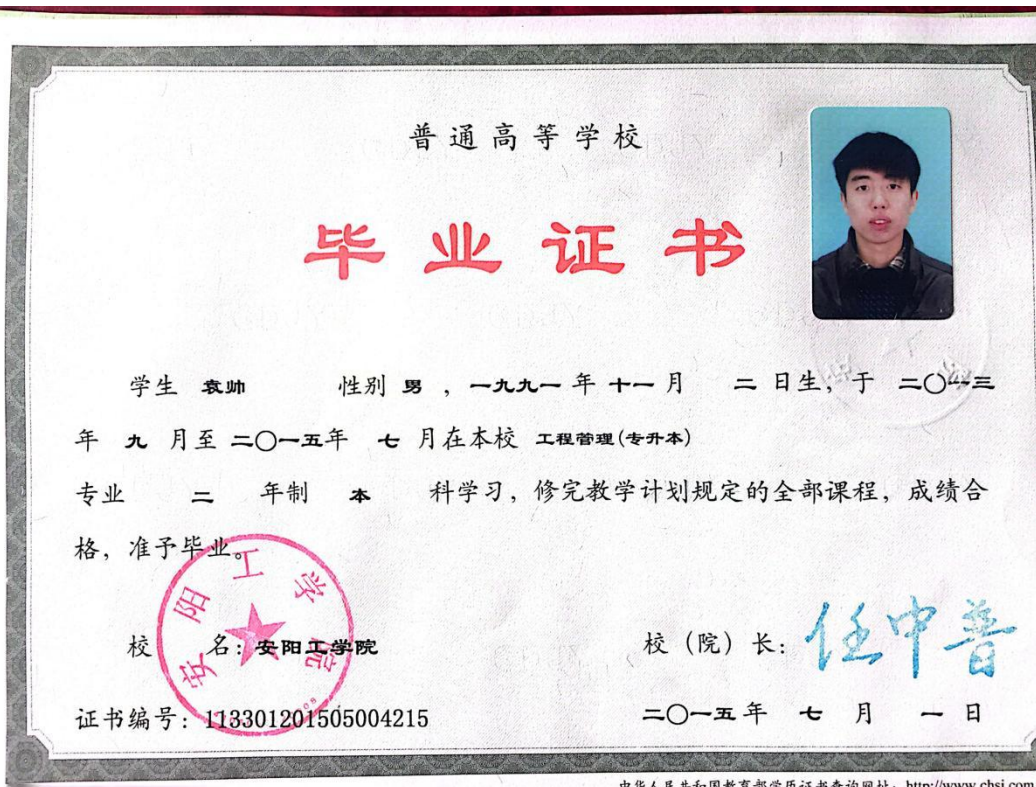 普通高等学校
毕业证书
学生 袁帅 性别 男 ，一九九一 年 十一 月 二 日生，于 二〇一三
年 九 月至 二〇一五年 七 月在本校 工程管理(专升本)
专业 二 年制 本 科学习，修完教学计划规定的全部课程，成绩合
格，准予毕业。
安阳工学院
校 名：安阳工学院
校（院）长：任中普
证书编号：113301201505004215
二〇一五年 七 月 一 日
中华人民共和国教育部学历证书查询网址：http://www.chsi.com